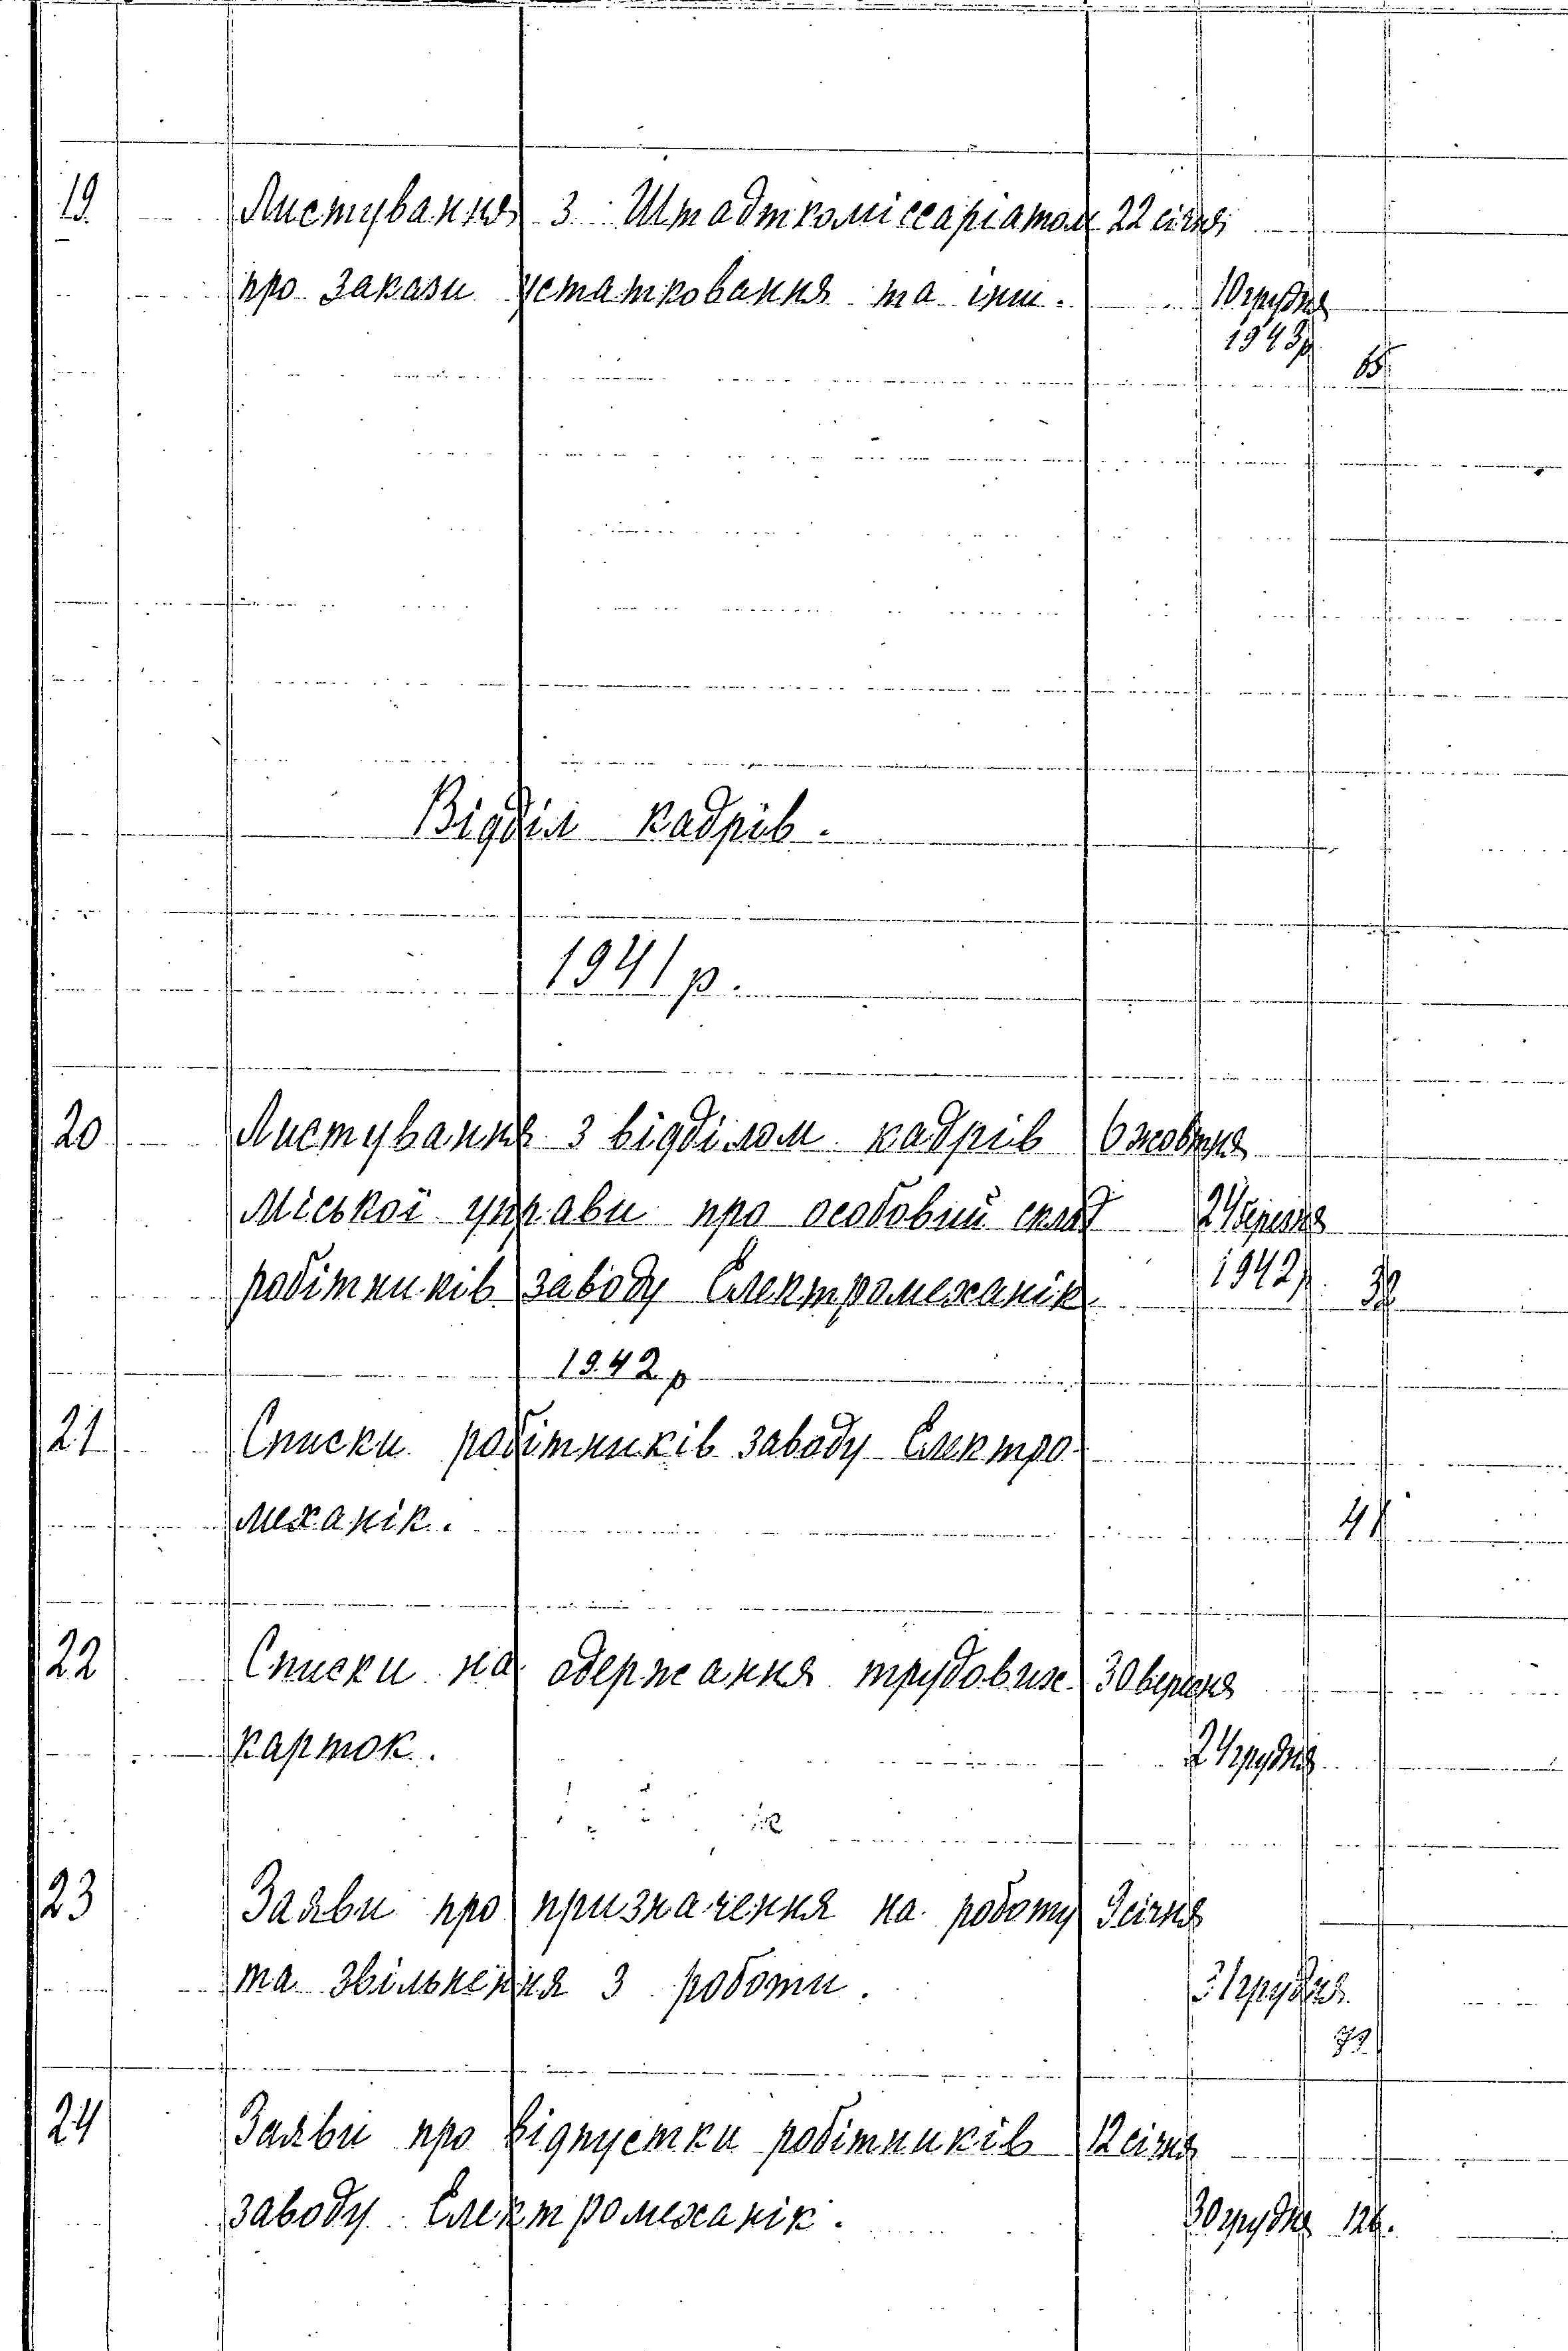 19. Листування з Штадткоміссаріатом 22 січня
про закази устатковання та інш. 10 грудня
1943р
65
Відділ кадрів.
1941 р.
20 Листування з відділом кадрів 6 жовтня
Міської управи про особовий склад 21 березня
робітників заводу Електромеханік 1942р 32
1942 р
21 Списки робітників заводу Електро-
механік. 41
22 Списки на одержання трудових 30 вересня
карток. 21 грудня
23 Заяви про призначення на роботу 3 січня
та звільнення з роботи. 31 грудня
72
24 Заяви про відпустки робітників 12 січня
заводу Електромеханік. 30 грудня 126.